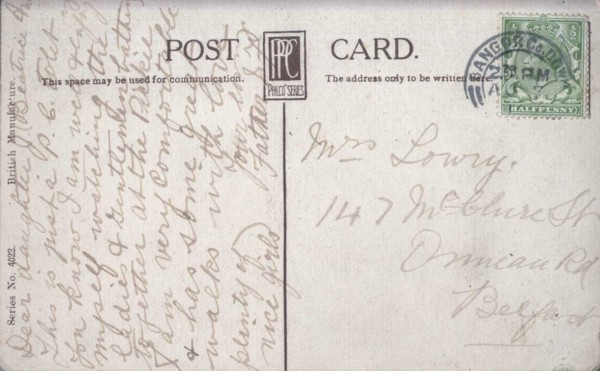 POST CARD.
PPC
PHILCO SERIES
This space may be used for communication.
The address only to be written here.
Series No. 4022. British Manufacture.
BANGOR Co. DOWN
PM
HALFPENNY
Dear daughter & Beatrice
This is just a P. C. to let
you know I am well &
myself watching the
Ladies & Gentlemen bathing
together at the Pickie
I am very Comfortable
& has some great
walks with the
plenty of
nice girls
your
Father
Mrs Lowry.
147 McClure St
Ormeau Rd
Belfast